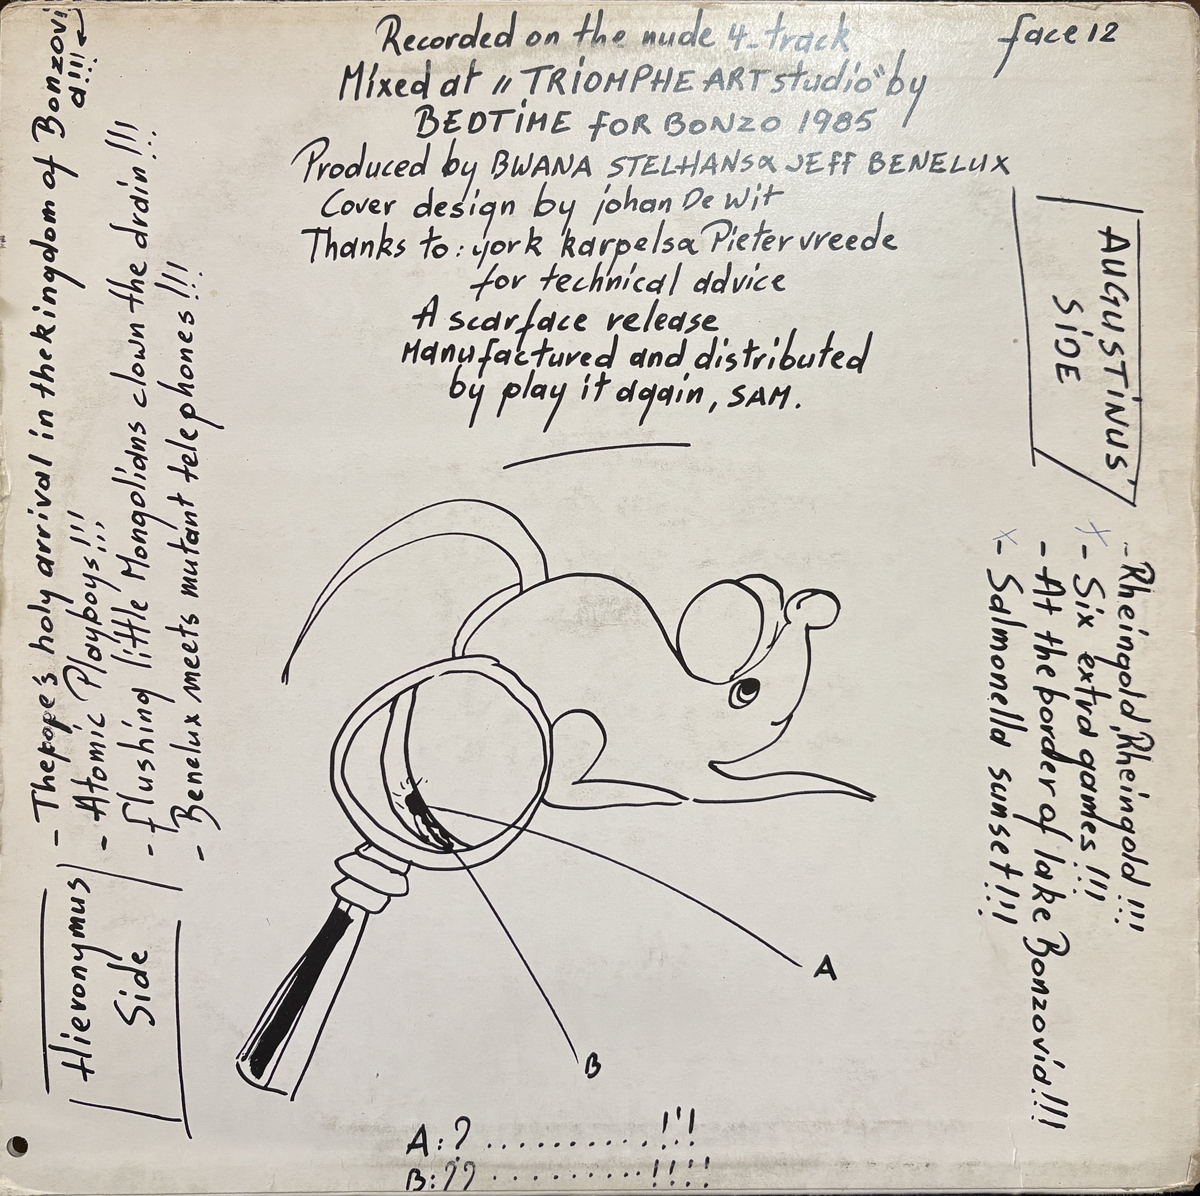 Recorded on the nude 4-track
Mixed at „TRIOMPHE ART studio" by
BEDTIME FOR BONZO 1985
Produced by BWANA STELHANS & JEFF BENELUX
Cover design by johan De Wit
Thanks to: york karpels & Pieter vreede
for technical advice
A scarface release
Manufactured and distributed
by play it again, SAM.
face 12
AUGUSTINUS'
SIDE
- Rheingold, Rheingold!!!
x - Six extra games!!!
- At the border of lake Bonzovia!!!
x - Salmonella sunset!!!
Hieronymus
Side
- The pope's holy arrival in the kingdom of Bonzovi
a!!!
- Atomic Playboys!!!
- flushing little Mongolians clown the drain!!!
- Benelux meets mutant telephones!!!
A
B
A:? ............!!!
B:?? ...........!!!!